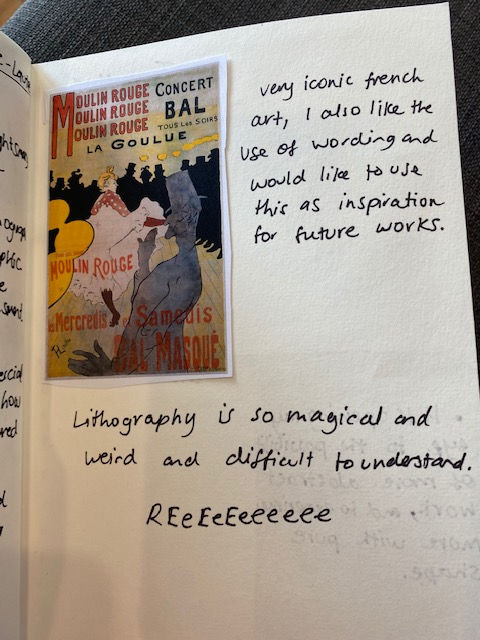 MOULIN ROUGE CONCERT
MOULIN ROUGE BAL
MOULIN ROUGE TOUS LES SOIRS
LA GOULUE
MOULIN ROUGE
Mercredis et Samedis
BAL MASQUÉ
very iconic french
art, I also like the
use of wording and
would like to use
this as inspiration
for future works.
Lithography is so magical and
weird and difficult to understand.
REeEeEeeeeee